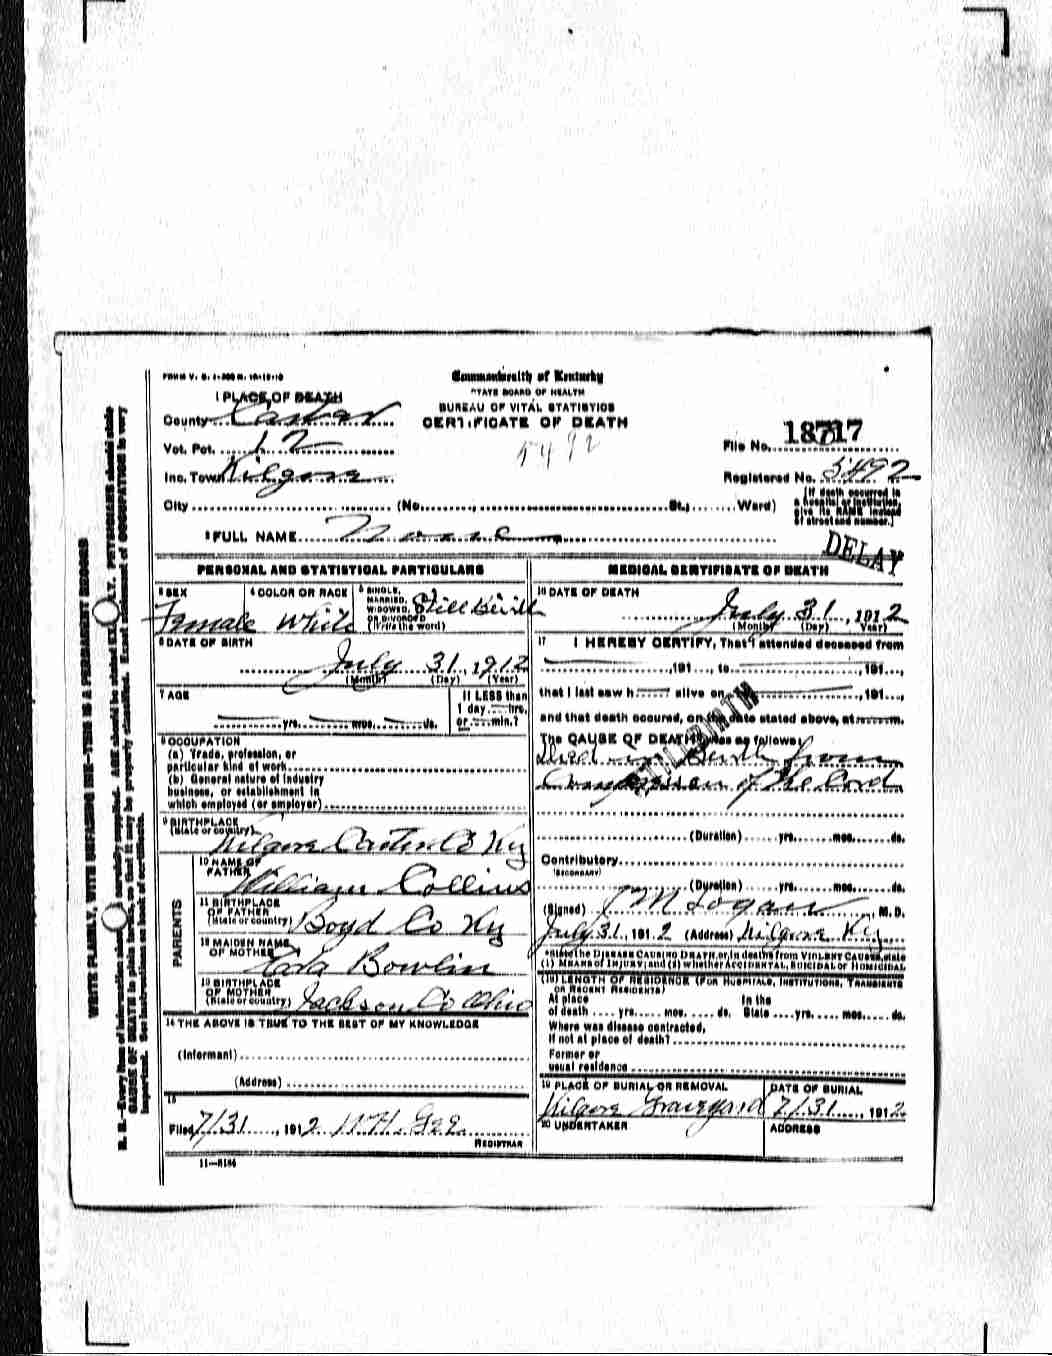 FORM V. S. 1-200 M. 10-19-10
Commonwealth of Kentucky
STATE BOARD OF HEALTH
BUREAU OF VITAL STATISTICS
CERTIFICATE OF DEATH
5492
1 PLACE OF DEATH
County Carter
Vot. Pct. 12
Inc. Town Kilgore
City (No. St., Ward)
File No. 18717
Registered No. 5492
[If death occurred in
a Hospital or Institution
give its NAME instead
of street and number.]
2 FULL NAME None
DELAY
PERSONAL AND STATISTICAL PARTICULARS
3 SEX
Female
4 COLOR OR RACE
White
5 SINGLE,
MARRIED,
WIDOWED,
OR DIVORCED
(Write the word)
Still Birth
6 DATE OF BIRTH
July 31 1912
(Month) (Day) (Year)
7 AGE
yrs. mos. ds.
If LESS than
1 day hrs.
or min.?
8 OCCUPATION
(a) Trade, profession, or
particular kind of work
(b) General nature of industry
business, or establishment in
which employed (or employer)
9 BIRTHPLACE
(State or country)
Kilgore Carter Co Ky
PARENTS
10 NAME OF
FATHER
William Collins
11 BIRTHPLACE
OF FATHER
(State or country)
Boyd Co Ky
12 MAIDEN NAME
OF MOTHER
Bowlin
13 BIRTHPLACE
OF MOTHER
(State or country)
Jackson Co Ohio
14 THE ABOVE IS TRUE TO THE BEST OF MY KNOWLEDGE
(Informant)
(Address)
15
Filed 7/31, 1912 W.H. Gee
REGISTRAR
11—5184
MEDICAL CERTIFICATE OF DEATH
16 DATE OF DEATH
July 31, 1912
(Month) (Day) Year)
17 I HEREBY CERTIFY, That I attended deceased from
, 191 , to , 191 ,
that I last saw h alive on , 191 ,
and that death occured, on the date stated above, at m.
The CAUSE OF DEATH was as follows
STILLBIRTH
Died in Birth from
Compression of the Cord
(Duration) yrs. mos. ds.
Contributory
(SECONDARY)
(Duration) yrs. mos. ds.
(Signed) J M Logan, M.D.
July 31, 1912 (Address) Kilgore Ky
*State the DISEASE CAUSING DEATH, or, in deaths from VIOLENT CAUSES, state
(1) MEANS of INJURY; and (2) whether ACCIDENTAL, SUICIDAL or HOMICIDAL
(18) LENGTH OF RESIDENCE (FOR HOSPITALS, INSTITUTIONS, TRANSIENTS
OR RECENT RESIDENTS)
At place
of death yrs. mos. ds.
In the
State yrs. mos. ds.
Where was disease contracted,
if not at place of death?
Former or
usual residence
19 PLACE OF BURIAL OR REMOVAL
Kilgore Graveyard
DATE OF BURIAL
7/31, 1912
20 UNDERTAKER
ADDRESS
WRITE PLAINLY, WITH UNFADING INK—THIS IS A PERMANENT RECORD
N. B.—Every item of information should be carefully supplied. AGE should be stated EXACTLY. PHYSICIANS should state
CAUSE OF DEATH in plain terms, so that it may be properly classified. Exact statement of OCCUPATION is very
important. See instructions on back of certificate.